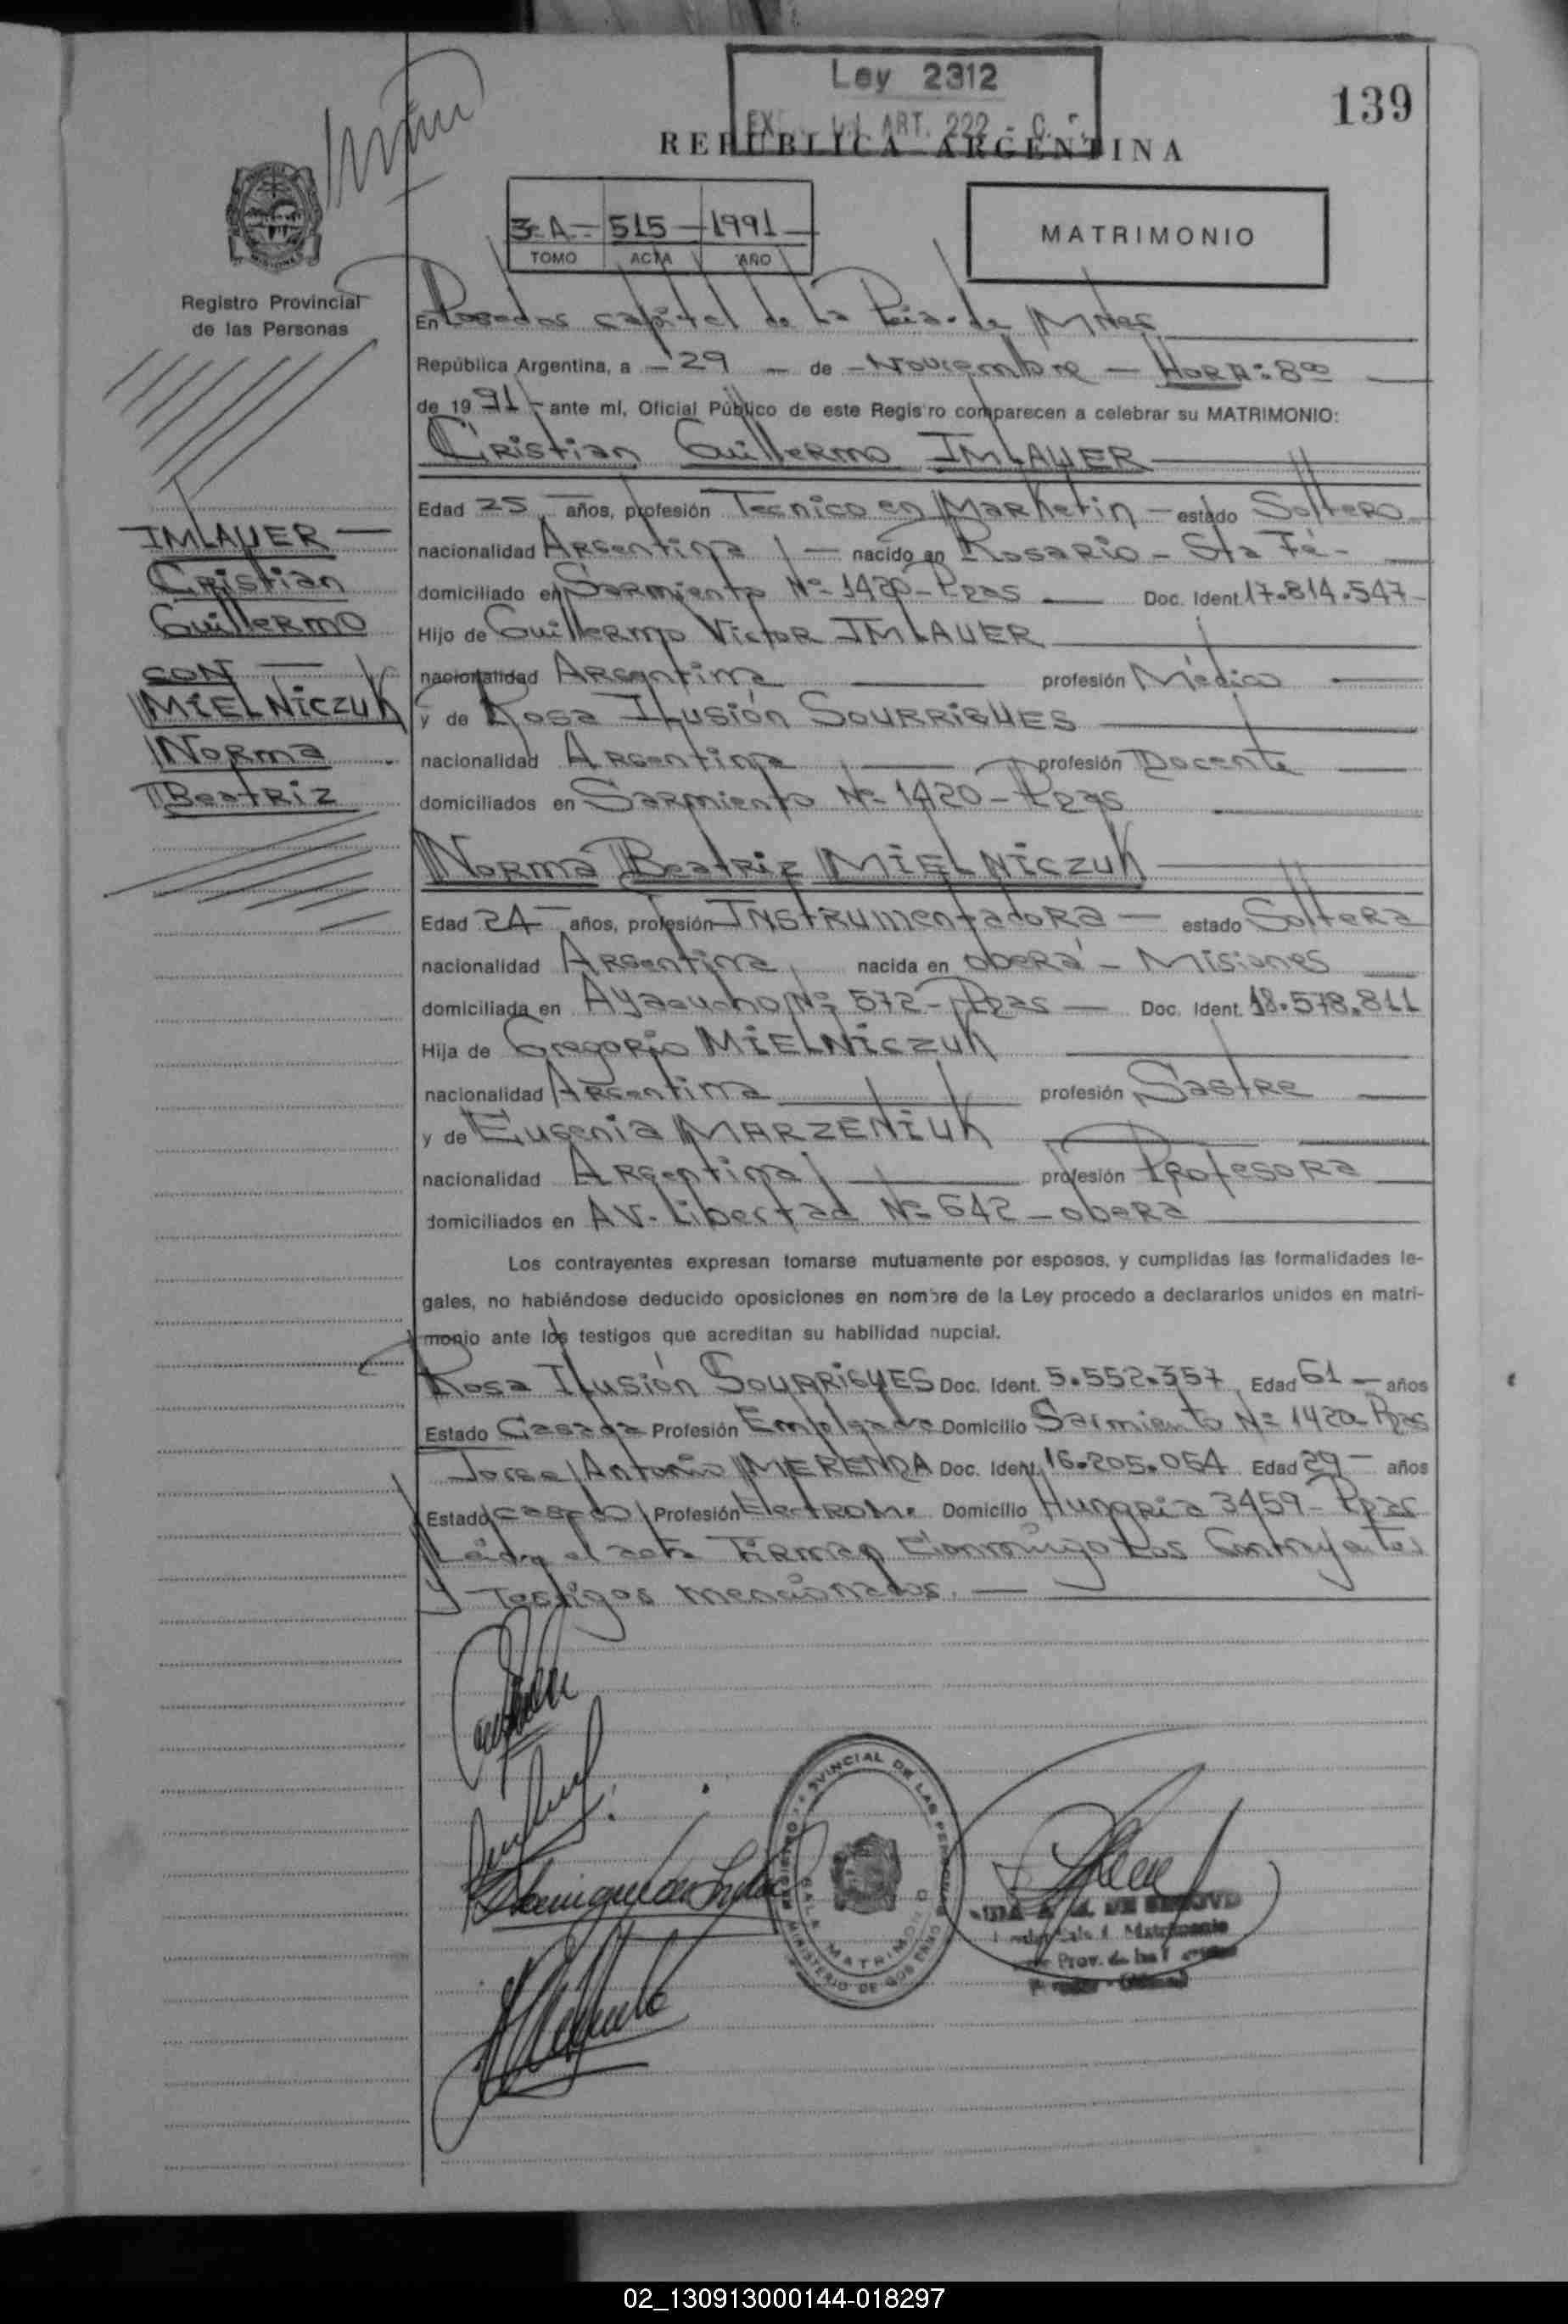 Ley 2312
ART. 222 - C.
139
REPUBLICA ARGENTINA
3-A- 515 - 1991 -
TOMO ACTA AÑO
MATRIMONIO
Registro Provincial
de las Personas
En Posadas capital de la Pcia. de Mnes
República Argentina, a - 29 - de - Noviembre - HORA: 8oo
de 1991 - ante mí, Oficial Público de este Registro comparecen a celebrar su MATRIMONIO:
Cristian Guillermo IMLAUER
Edad 25 años, profesión Tecnico en Marketin - estado Soltero
nacionalidad Argentina - nacido en Rosario - Sta Fé -
domiciliado en Sarmiento Nº 1420 - Pdas Doc. Ident. 17.814.547 -
Hijo de Guillermo Victor IMLAUER
nacionalidad Argentina profesión Médico
y de Rosa Ilusión SOURRIGUES
nacionalidad Argentina profesión Docente
domiciliados en Sarmiento Nº 1420 - Pdas
Norma Beatriz MIELNICZUK
Edad 24 años, profesión Instrumentadora - estado Soltera
nacionalidad Argentina nacida en Oberá - Misiones
domiciliada en Ayacucho Nº 572 - Pdas - Doc. Ident. 18.578.811
Hija de Gregorio MIELNICZUK
nacionalidad Argentina profesión Sastre
y de Eugenia MARZENIUK
nacionalidad Argentina profesión Profesora
domiciliados en AV. Libertad Nº 642 - obera
Los contrayentes expresan tomarse mutuamente por esposos, y cumplidas las formalidades le-
gales, no habiéndose deducido oposiciones en nombre de la Ley procedo a declararlos unidos en matri-
monio ante los testigos que acreditan su habilidad nupcial.
Rosa Ilusión SOURRIGUES Doc. Ident. 5.552.357 Edad 61 - años
Estado Casada Profesión Empleada Domicilio Sarmiento Nº 1420 Pdas
Jorge Antonio MERENDA Doc. Ident. 16.205.054 Edad 29 - años
Estado casado Profesión Electrom. Domicilio Hungria 3459 - Pdas
Leida el acta Firman Conmigo Los Contrayentes
y Testigos mencionados. -
IMLAUER -
Cristian
Guillermo
CON -
MIELNICZUK
Norma
Beatriz
REGISTRO PROVINCIAL DE LAS PERSONAS
MATRIMONIO
MINISTERIO DE GOBIERNO
02_130913000144-018297